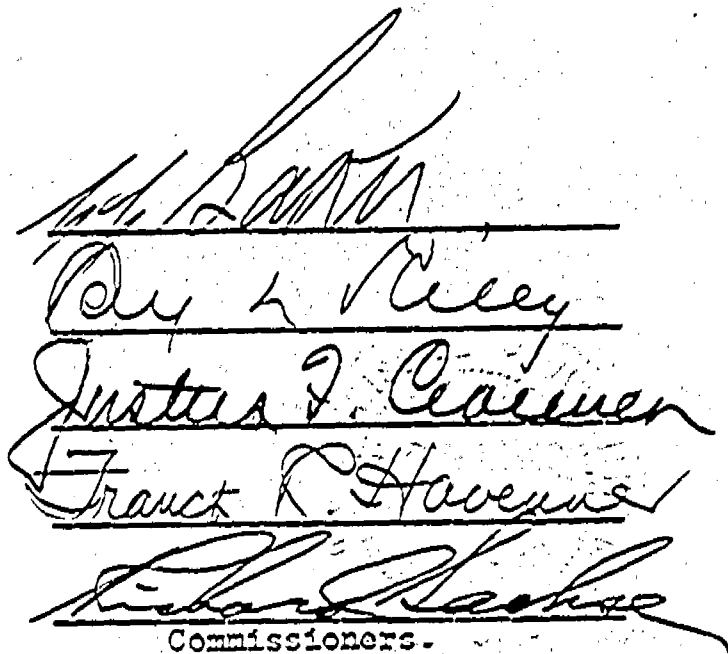 Ray L Riley
Justus F. Craemer
Franck R. Havenner
Richard Sachse
Commissioners.